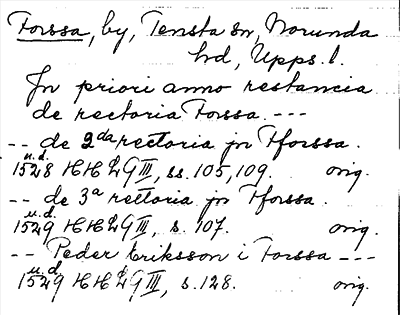 Forssa, by, Tensta sn, Norunda
hd, Upps. l.
In priori anno restancia
de rectoria Forssa. ---
-- de 2da rectoria jn Fforssa.
u.d.
1528 HH LG III, ss. 105, 109. orig.
-- de 3a rettoria jn Fforssa.
u.d.
1529 HH LG III, s. 107. orig.
-- Peder Eriksson i Forssa ---
u.d.
1529 HH LG III, s. 128. orig.